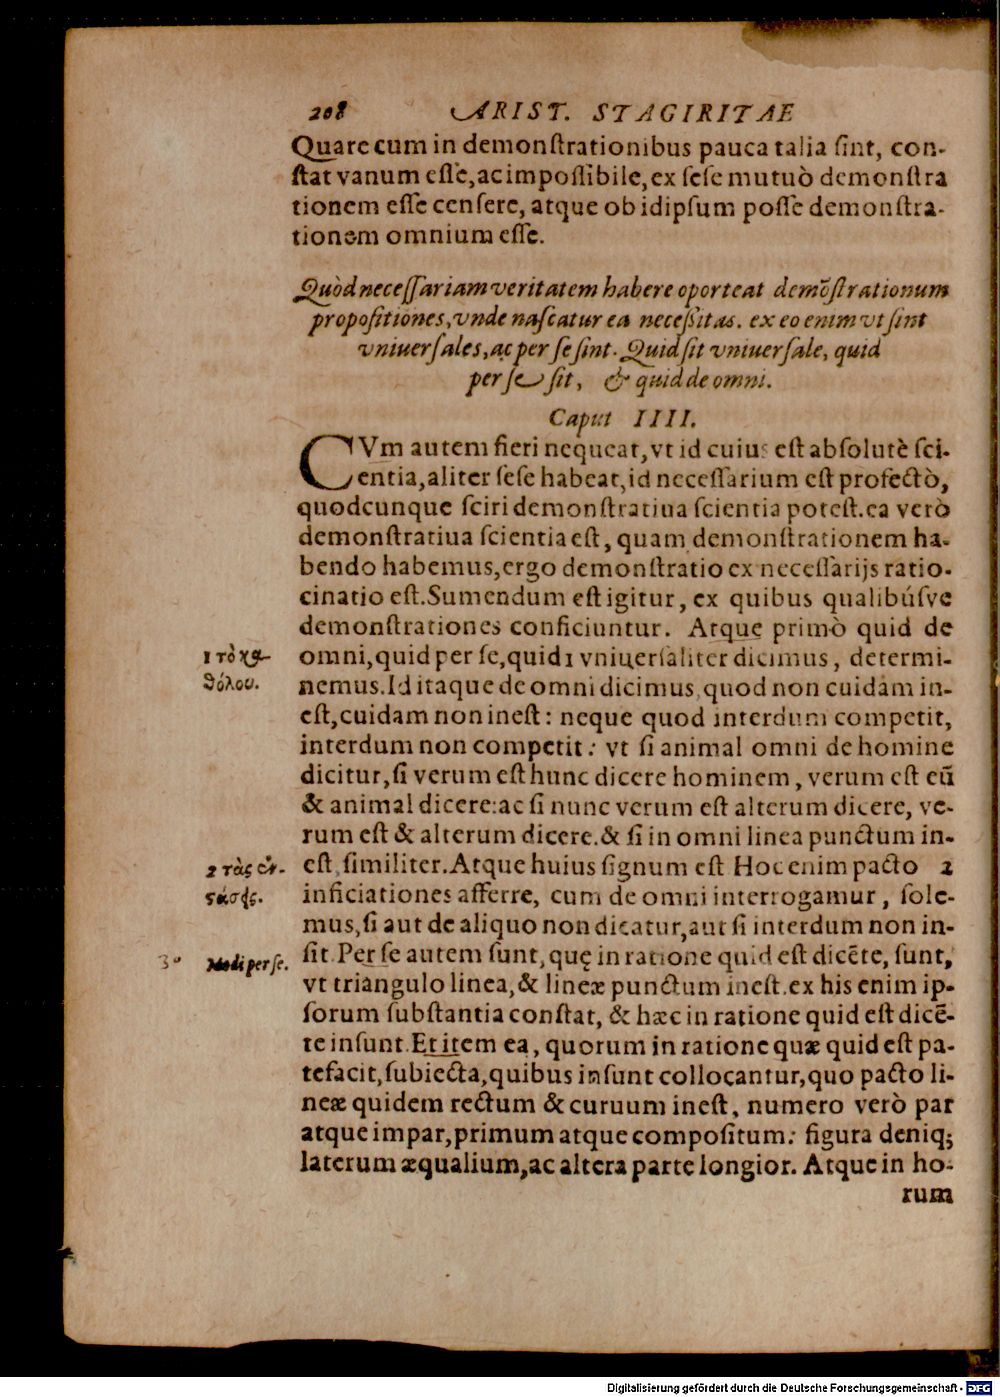 208 ARIST. STAGIRITAE
Quare cum in demonſtrationibus pauca talia ſint, con-
ſtat vanum eſſe, ac impoſſibile, ex ſeſe mutuò demonſtra
tionem eſſe cenſere, atque ob idipſum poſſe demonſtra-
tionem omnium eſſe.
Quòd neceſſariam veritatem habere oporteat demōſtrationum
propoſitiones, vnde naſcatur ea neceßitas. ex eo enim vt ſint
vniuerſales, ac per ſe ſint. Quid ſit vniuerſale, quid
per ſe ſit, & quid de omni.
Caput IIII.
CVm autem fieri nequeat, vt id cuius eſt abſolutè ſci-
entia, aliter ſeſe habeat, id neceſſarium eſt profectò,
quodcunque ſciri demonſtratiua ſcientia poteſt. ea verò
demonſtratiua ſcientia eſt, quam demonſtrationem ha-
bendo habemus, ergo demonſtratio ex neceſſarijs ratio-
cinatio eſt. Sumendum eſt igitur, ex quibus qualibúſve
demonſtrationes conficiuntur. Atque primò quid de
1 τὸ χα-
θόλου.
omni, quid per ſe, quid 1 vniuerſaliter dicimus, determi-
nemus. Id itaque de omni dicimus, quod non cuidam in-
eſt, cuidam non ineſt: neque quod interdum competit,
interdum non competit: vt ſi animal omni de homine
dicitur, ſi verum eſt hunc dicere hominem, verum eſt eū
& animal dicere: ac ſi nunc verum eſt alterum dicere, ve-
rum eſt & alterum dicere. & ſi in omni linea punctum in-
2 τὰς ἐν-
στάσεις.
eſt, ſimiliter. Atque huius ſignum eſt Hoc enim pacto 2
inficiationes afferre, cum de omni interrogamur, ſole-
mus, ſi aut de aliquo non dicatur, aut ſi interdum non in-
3º Modi per ſe.
ſit. Per ſe autem ſunt, quę in ratione quid eſt dicēte, ſunt,
vt triangulo linea, & lineæ punctum ineſt. ex his enim ip-
ſorum ſubſtantia conſtat, & hæc in ratione quid eſt dicē-
te inſunt. Et item ea, quorum in ratione quæ quid eſt pa-
tefacit, ſubiecta, quibus inſunt collocantur, quo pacto li-
neæ quidem rectum & curuum ineſt, numero verò par
atque impar, primum atque compoſitum: figura deniq;
laterum æqualium, ac altera parte longior. Atque in ho-
rum
Digitalisierung gefördert durch die Deutsche Forschungsgemeinschaft - DFG